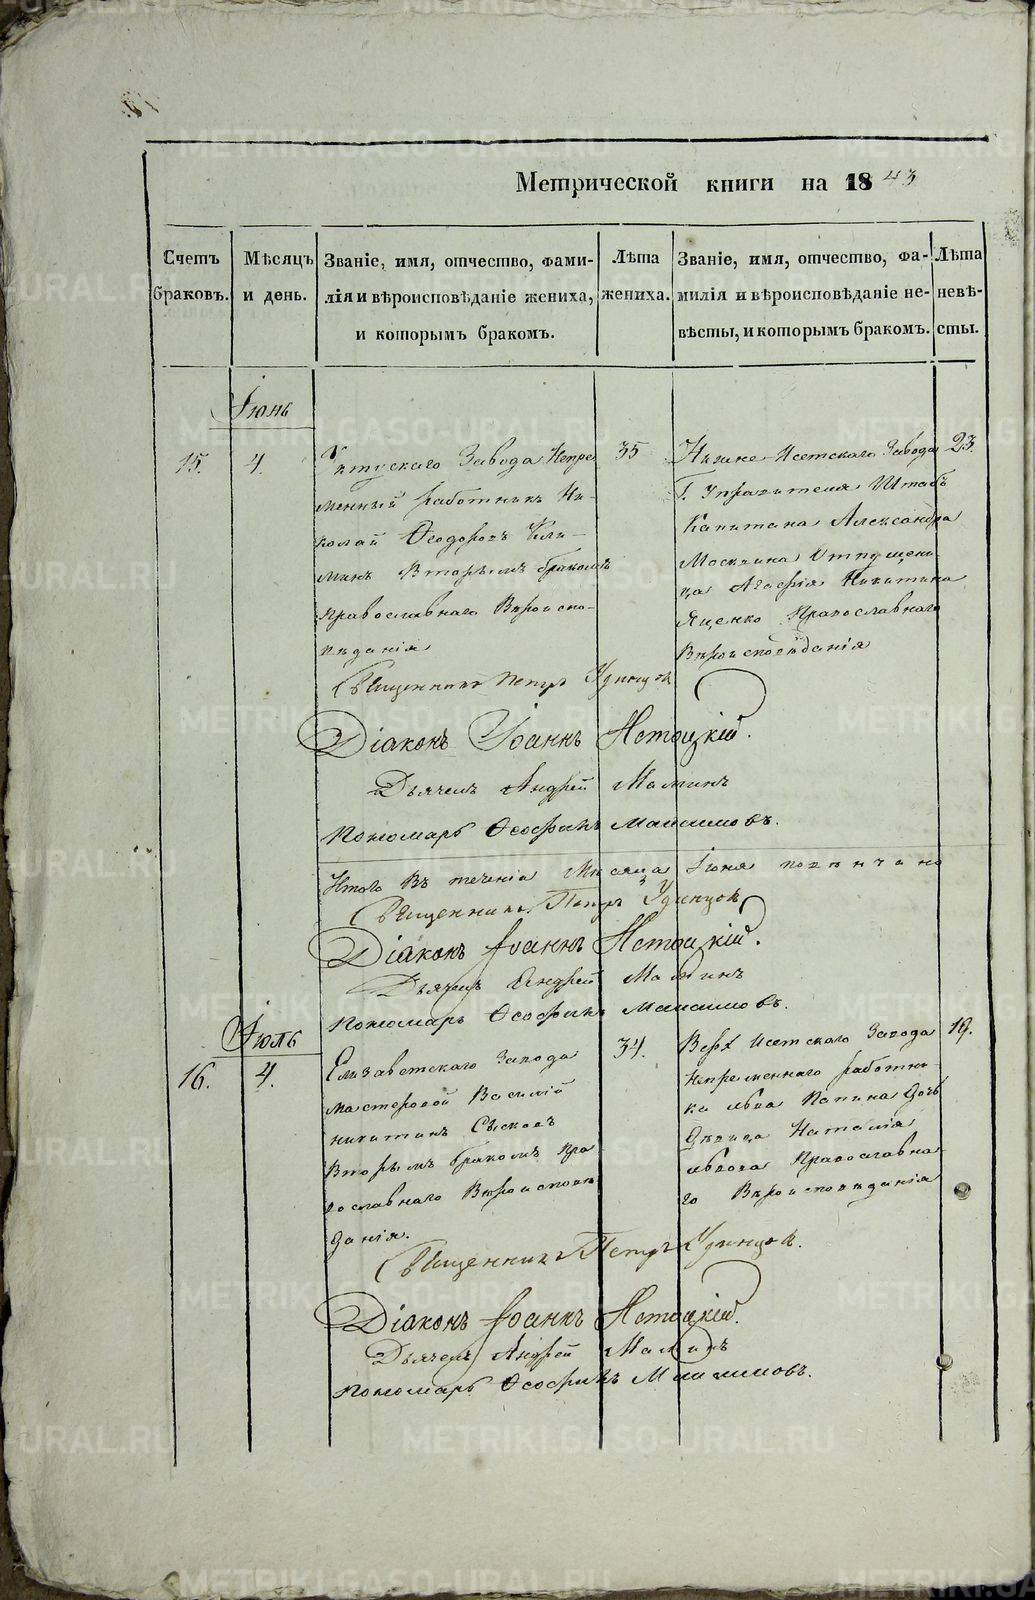 Метрической книги на 1843
Счетъ браковъ.
Мѣсяцъ и день.
Званіе, имя, отчество, фами-
лія и вѣроисповѣданіе жениха,
и которымъ бракомъ.
Лѣта жениха.
Званіе, имя, отчество, фа-
милія и вѣроисповѣданіе не-
вѣсты, и которымъ бракомъ.
Лѣта невѣ-
сты.
Іюнь
15.
4.
завода Непре
менный работникъ Ни-
колай Ѳеодоровъ Кли-
минъ вторымъ бракомъ
православнаго вѣроиспо-
вѣданія
35
Нижне-Исетскаго завода
Г. Управителя Штабъ
Капитана Александра
Москвина Отпущени-
ца Агафія Никитина
Яценко Православнаго
Вѣроисповѣданія
23.
Священникъ Петръ Удинцов
Діаконъ Іоаннъ Нетоцкій.
Дьячекъ Андрей Маминъ
Пономарь Ѳеофанъ Максимовъ.
Итого въ теченіи Мисяца Іюня повѣнчано
Священникъ Петръ Удинцов
Діаконъ Іоаннъ Нетоцкій.
Дьячекъ Андрей Маминъ
Пономарь Ѳеофанъ Максимовъ.
Іюль
16.
4.
Елизаветскаго завода
мастеровой Василій
никитинъ Сысковъ
Вторымъ бракомъ пра
вославнаго Вѣроисповѣ
данія.
34.
Верх Исетскаго Завода
Непременнаго работни-
ка льва Папина дочь
Дѣвица Наталія
львова Православна-
го Вѣроисповѣданія
19.
Священникъ Петръ Удинцов.
Діаконъ Іоаннъ Нетоцкій.
Дьячекъ Андрей Маминъ
Пономарь Ѳеофанъ Максимовъ.
METRIKI.GASO-URAL.RU